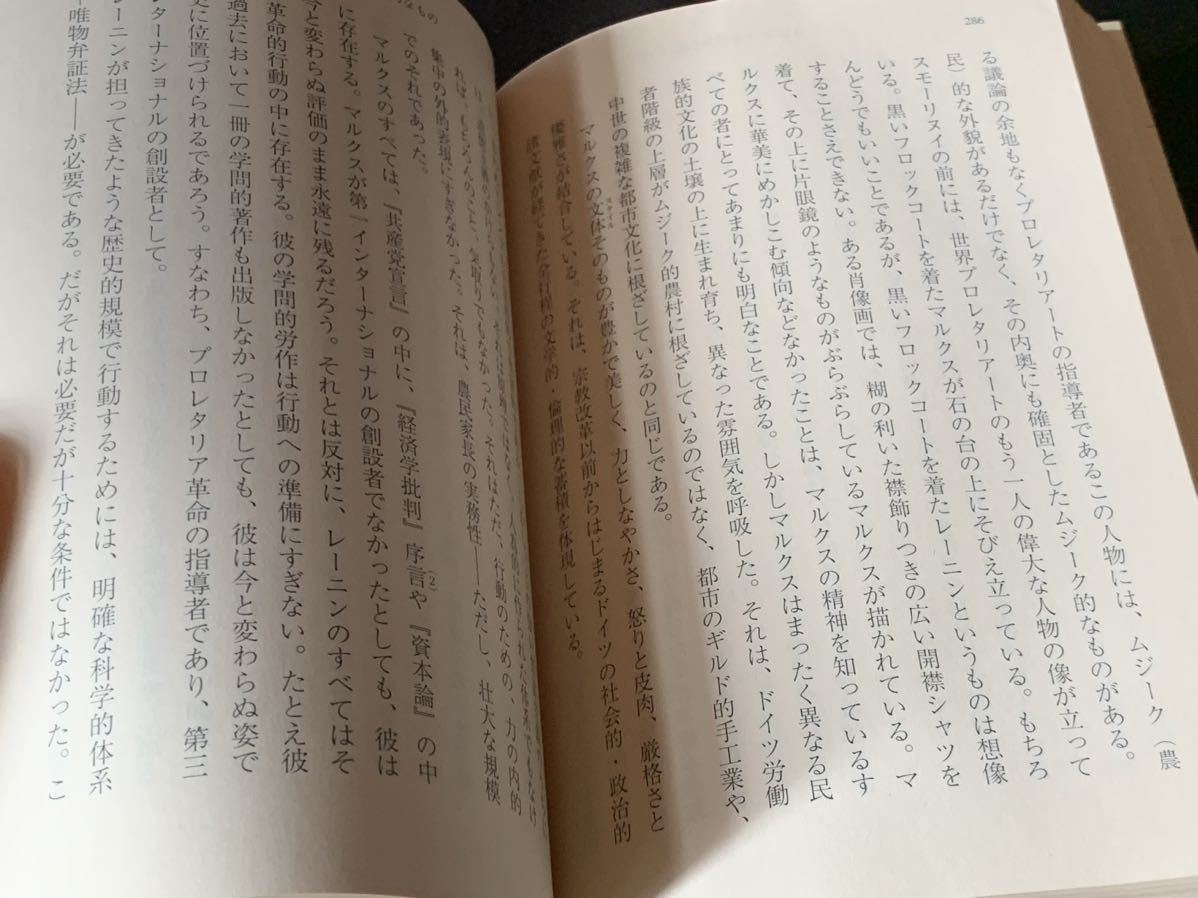 286
る議論の余地もなくプロレタリアートの指導者であるこの人物には、ムジーク(農
民)的な外貌があるだけでなく、その内奥にも確固としたムジーク的なものがある。
スモーリヌイの前には、世界プロレタリアートのもう一人の偉大な人物の像が立って
いる。黒いフロックコートを着たマルクスが石の台の上にそびえ立っている。もちろ
んどうでもいいことであるが、黒いフロックコートを着たレーニンというものは想像
することさえできない。ある肖像画では、糊の利いた襟飾りつきの広い開襟シャツを
着て、その上に片眼鏡のようなものがぶらぶらしているマルクスが描かれている。マ
ルクスに華美にめかしこむ傾向などなかったことは、マルクスの精神を知っているす
べての者にとってあまりにも明白なことである。しかしマルクスはまったく異なる民
族的文化の土壌の上に生まれ育ち、異なった雰囲気を呼吸した。それは、ドイツ労働
者階級の上層がムジーク的農村に根ざしているのではなく、都市のギルド的手工業や、
中世の複雑な都市文化に根ざしているのと同じである。
マルクスの文体そのものが豊かで美しく、力としなやかさ、怒りと皮肉、厳格さと
スタイル
優雅さが結合している。それは、宗教改革以前からはじまるドイツの社会的・政治的
諸文献が経てきた全行程の文学的・倫理的な蓄積を体現している。
なもの
れば、もちろんのこと、気取りでもなかった。それはただ、行動のための、力の内的
集中の外的表現にすぎなかった。それは、農民家長の実務性――ただし、壮大な規模
でのそれであった。
マルクスのすべては、『共産党宣言』の中に、『経済学批判』序言(2)や『資本論』の中
に存在する。マルクスが第一インターナショナルの創設者でなかったとしても、彼は
今と変わらぬ評価のまま永遠に残るだろう。それとは反対に、レーニンのすべてはそ
革命的行動の中に存在する。彼の学問的労作は行動への準備にすぎない。たとえ彼
過去において一冊の学問的著作も出版しなかったとしても、彼は今と変わらぬ姿で
に位置づけられるであろう。すなわち、プロレタリア革命の指導者であり、第三
ターナショナルの創設者として。
レーニンが担ってきたような歴史的規模で行動するためには、明確な科学的体系
唯物弁証法――が必要である。だがそれは必要だが十分な条件ではなかった。こ